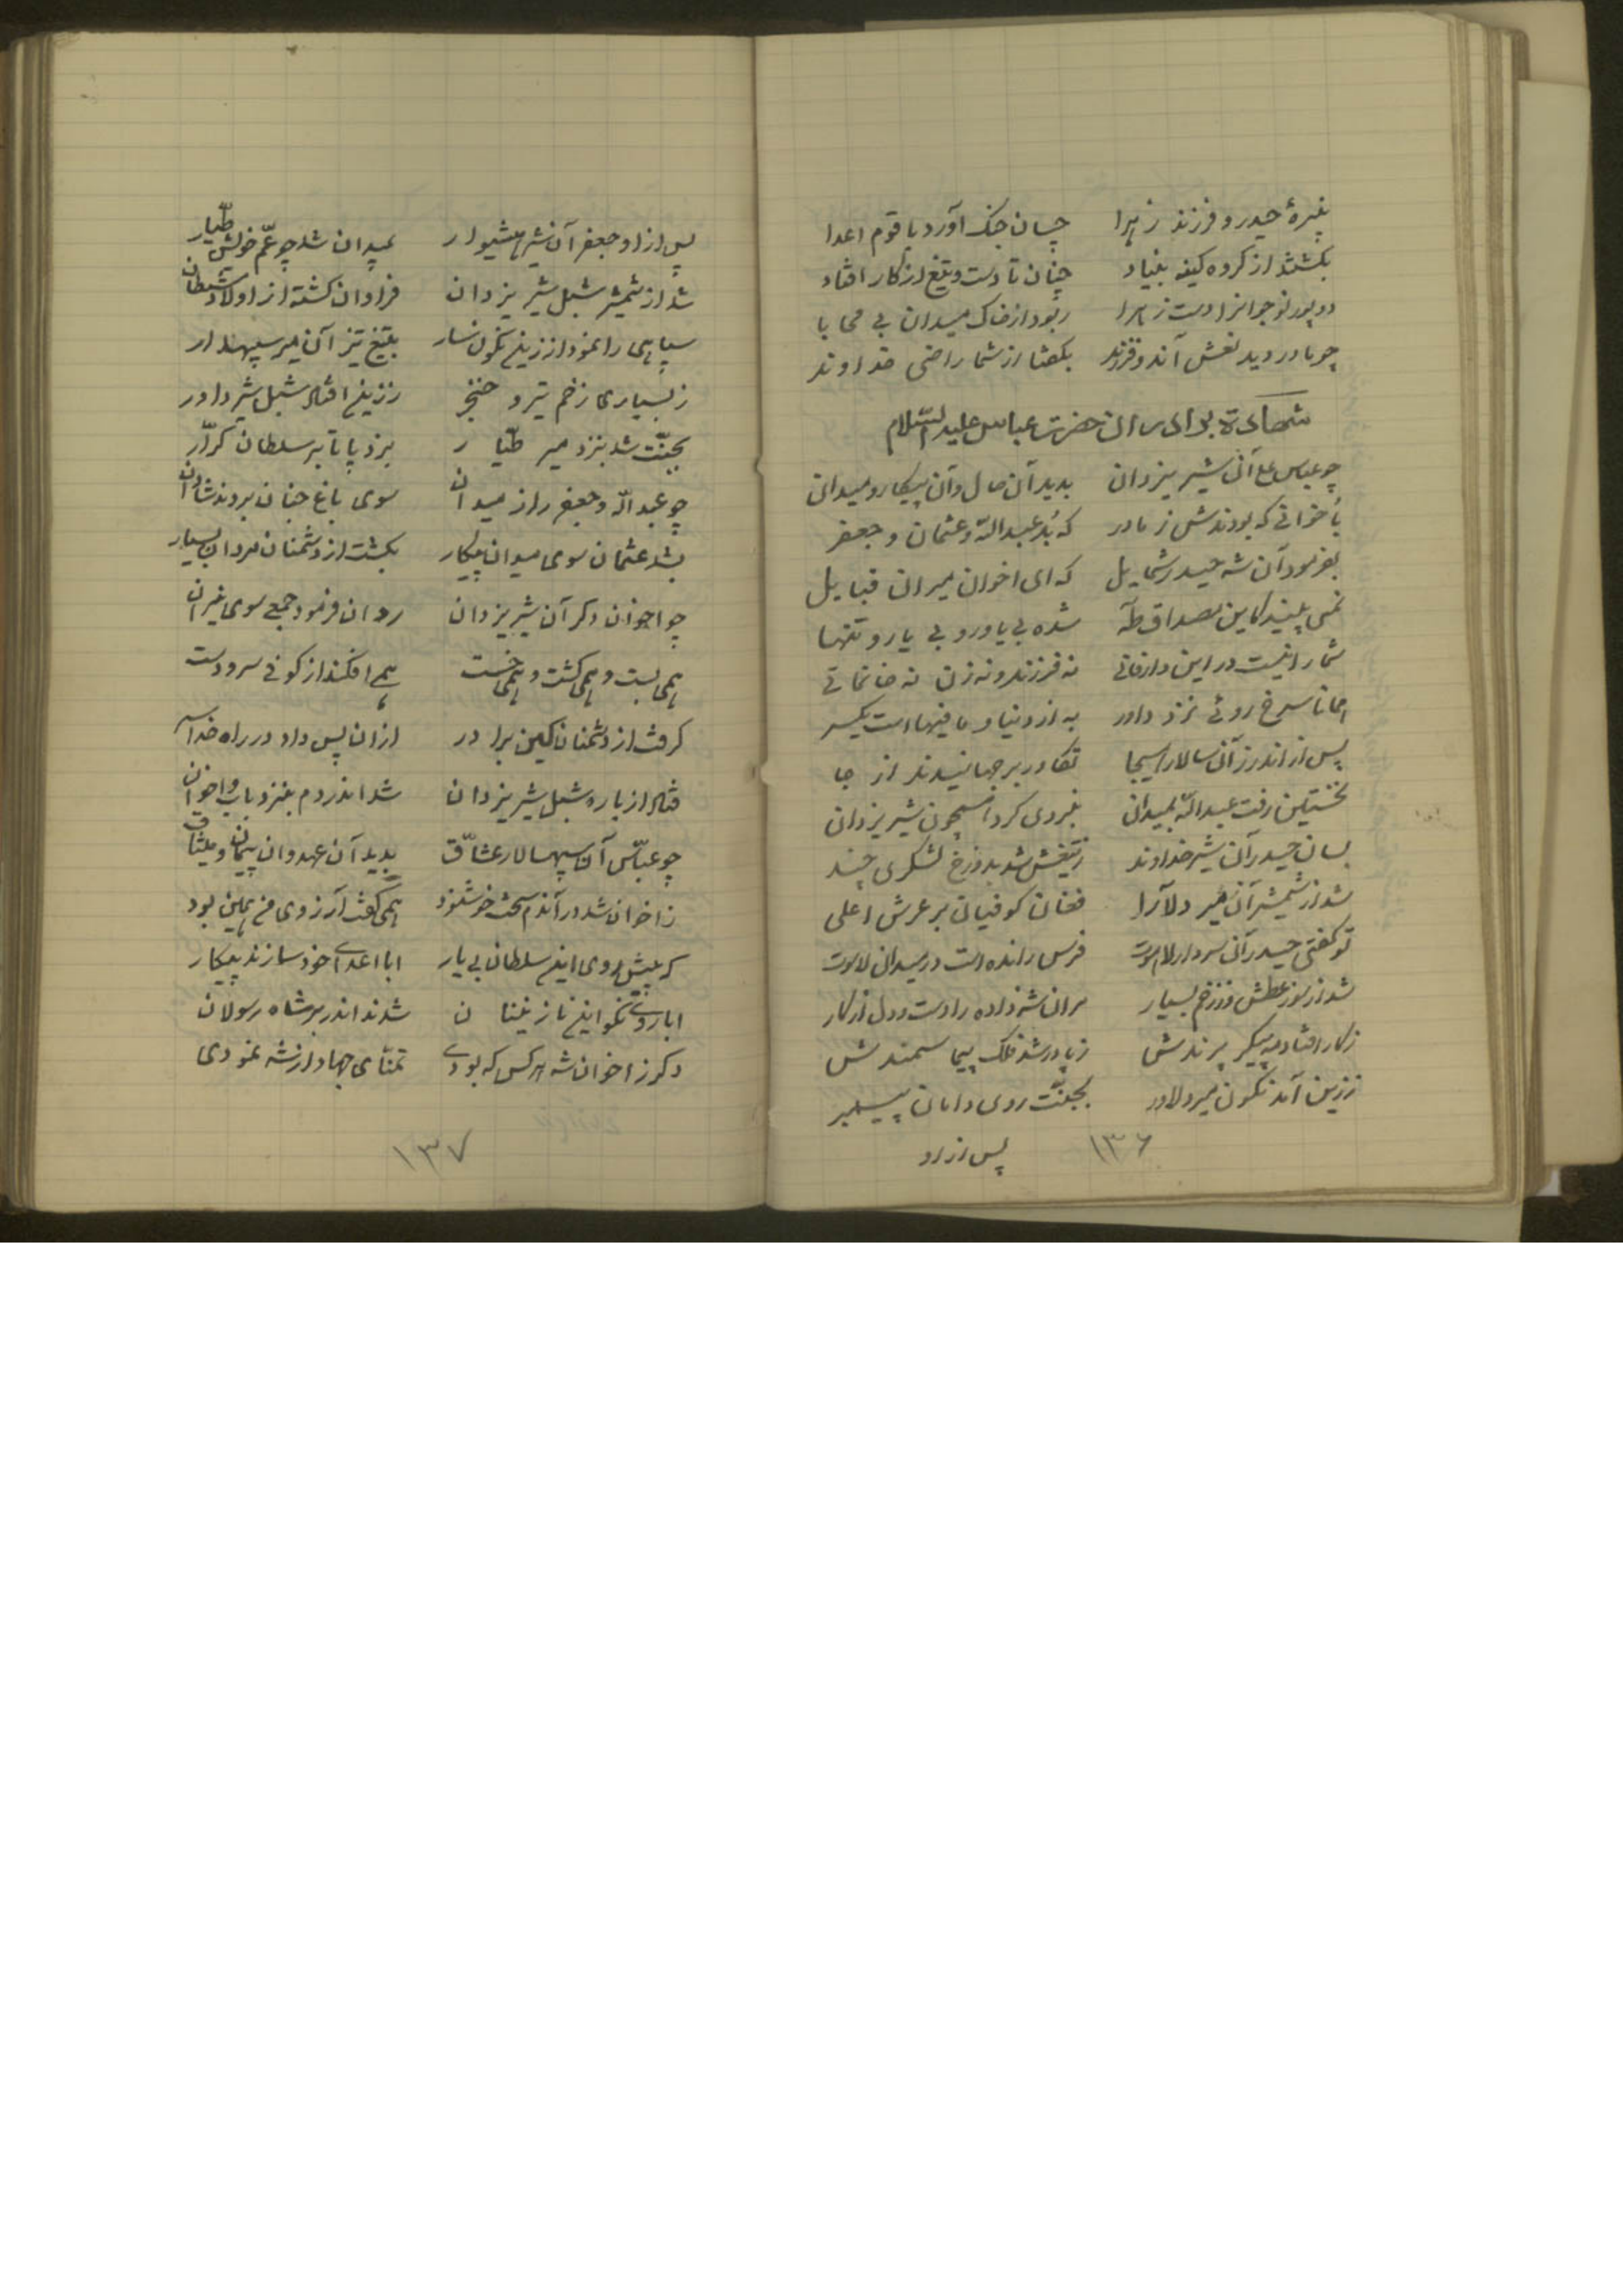 نبیرهٔ حیدر و فرزند زهرا چسان جنک آورد با قوم اعدا
بکشتند از کروه کینه بنیاد چنان تا دست و تیغ از کار افتاد
دو پور نوجوانرا دست زهرا ربود از خاک میدان بی محابا
چو مادر دید نعش آندو فرزند بکفتا از شما راضی خداوند
شهادة برادران حضرت عباس علیه السّلام
چو عباس علی آن شیر یزدان بدید آن حال و آن پیکار و میدان
باخوانی که بودندش ز مادر که بُد عبدالله و عثمان و جعفر
بفرمود آن شه حیدر شمایل که ای اخوان میران قبایل
نمی بینید کاین مصداق طه شده بی یاور و بی یار و تنها
شما را نیست در این دار فانی نه فرزند و نه زن نه خانمانی
همانا سرخ روئی نزد داور به از دنیا و مافیها است یکسر
پس از اندرز آن سالار هیجا تکاور بر جهانیدند از جا
نخستین رفت عبدالله بمیدان نبردی کرد همچون شیر یزدان
بسان حیدر آن شیر خداوند ز تیغش شد بدوزخ لشکری چند
شد از شمشیر آن میر دلآرا فغان کوفیان بر عرش اعلی
تو کفتی حیدر آن سردار لاهوت فرس رانده است در میدان ناسوت
شد از سوز عطش وز زخم بسیار مر آن شهزاده را دست و دل از کار
ز کار افتاد مه پیکر پرندش ز پا در شد فلک پیما سمندش
ز زین آمد نکون میر دلاور بجنّت روی دامان پیمبر
۱۳۶ پس از او
پس از او جعفر آن شیر هشیوار بمیدان شد چو عمّ خویش طیّار
شد از شمشیر شبل شیر یزدان فراوان کشته از اولاد شیطان
سپاهی را نمود از زین نکون سار بتیغ تیز آن میر سپهدار
ز بسیاری زخم تیر و خنجر ز زین افتاد شبل شیر داور
بجنّت شد بنزد میر طیّار بزد پا تا بر سلطان کرّار
چو عبدالله و جعفر را ز میدان سوی باغ جنان بردند شادان
بشد عثمان سوی میدان پیکار بکشت از دشمنان مردان بسیار
چو اخوان دکر آن شیر یزدان روان فرمود جمعی سوی نیران
همی بست و همی کشت و همی خست همی افکند از کوفی سر و دست
کرفت از دشمنان کین برادر از ان پس داد در راه خدا سر
فتاد از باره شبل شیر یزدان شد اندر دم بنزد باب و اخوان
چو عبّاس آن سپهسالار عشّاق بدید آن عهد و ان پیمان و میثاق
ز اخوان شد در آندم سخت خوشنود همی کفت آرزوی من همین بود
که پیش روی این سلطان بی یار ابا اعدای خود سازند پیکار
ابا روی نکو این نازنینان شدند اندر بر شاه رسولان
دکر ز اخوان شه هر کس که بودی تمنّای جهاد از شه نمودی
۱۳۷